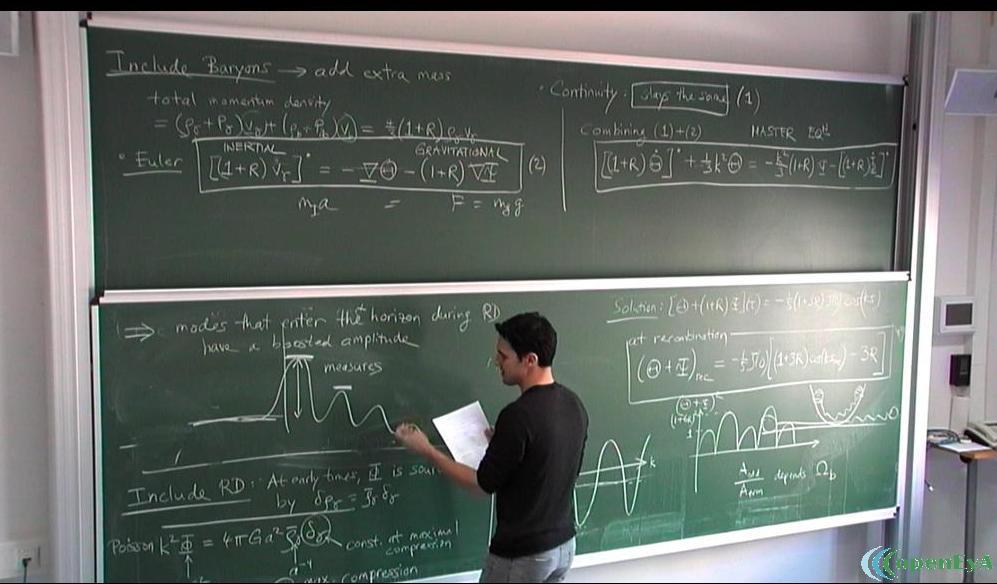 Include Baryons → add extra mass
total momentum density
= (ρ_γ + P_γ) V_γ + (ρ_b + P_b) V_b = 4/3 (1+R) ρ_γ V_γ
INERTIAL GRAVITATIONAL
• Euler [(1+R) V_γ]˙ = -∇Θ - (1+R) ∇Ψ (2)
m_I a = F = m_g g
• Continuity: stays the same (1)
Combining (1)+(2) MASTER EQN
[(1+R) Θ̇]˙ + 1/3 k² Θ = -k²/3 (1+R) Ψ - [(1+R) Φ̇]˙
⇒ modes that enter the horizon during RD
have a boosted amplitude
measures
Include RD: At early times, Φ is
by δρ_γ = ρ̄_γ δ_γ
Poisson k² Φ = 4πGa² ρ̄_γ δ_γ
const. at maximal
compression
a⁻⁴
max. compression
Solution: [Θ + (1+R) Ψ](τ) =
at recombination
(Θ + Ψ)_rec = [(1+3R) cos(ks) - 3R]
k
1
A_odd / A_even depends Ω_b
openEyA